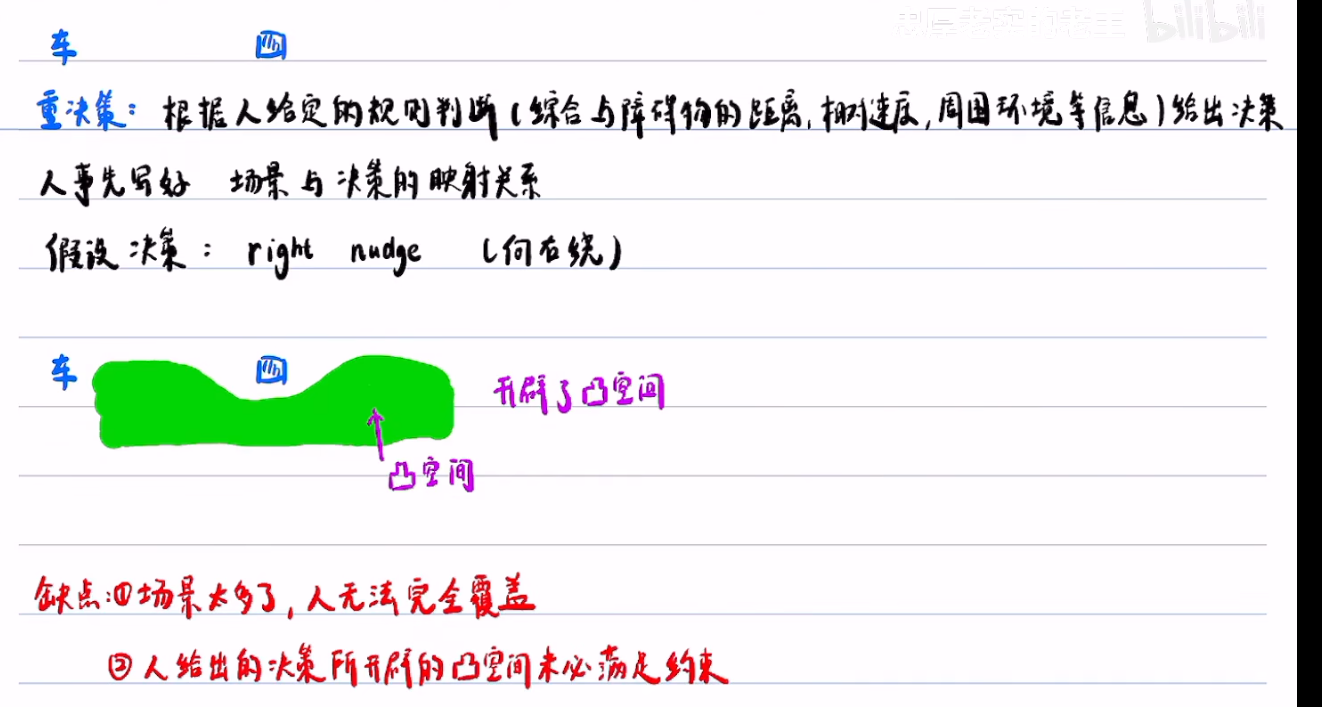 忠厚老实的老王 bilibili
车
重决策：根据人给定的规则判断(综合与障碍物的距离,相对速度,周围环境等信息)给出决策
人事先写好 场景与决策的映射关系
假设决策： right nudge (向右绕)
车
开辟了凸空间
凸空间
缺点:①场景太多了,人无法完全覆盖
②人给出的决策所开辟的凸空间未必满足约束